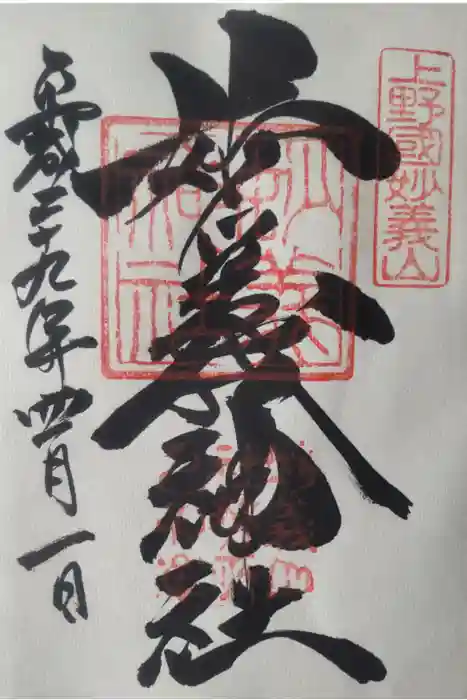 上野國妙義山
妙義神社
妙義神社
平成二十九年四月一日